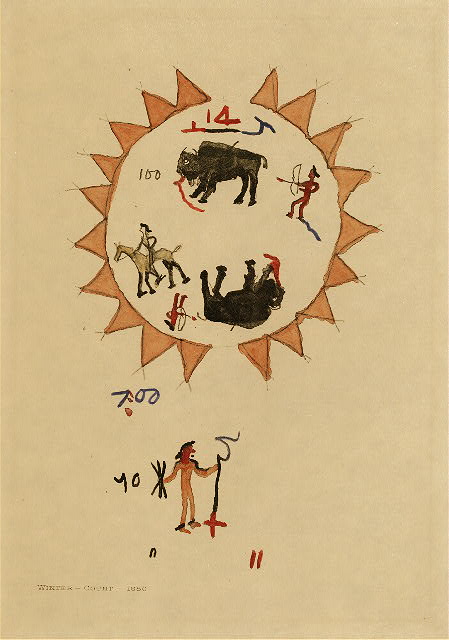 14
100
700
40
n
11
WINTER - COUNT - 1880